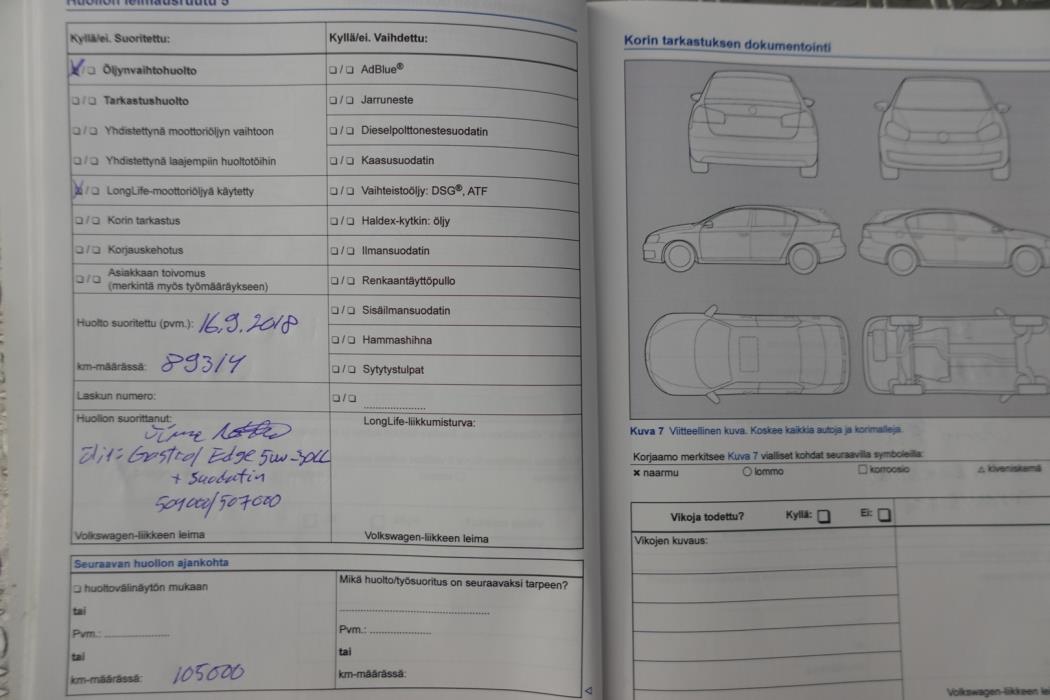 Huollon leimausruutu 5
Kyllä/ei. Suoritettu:
Öljynvaihtohuolto
Tarkastushuolto
Yhdistettynä moottoriöljyn vaihtoon
Yhdistettynä laajempiin huoltotöihin
LongLife-moottoriöljyä käytetty
Korin tarkastus
Korjauskehotus
Asiakkaan toivomus
(merkintä myös työmääräykseen)
Huolto suoritettu (pvm.): 16.9.2018
km-määrässä: 89314
Laskun numero:
Huollon suorittanut:
Edge 5w-30LL
+ suodatin
504000/507000
Volkswagen-liikkeen leima
Kyllä/ei. Vaihdettu:
AdBlue®
Jarruneste
Dieselpolttonestesuodatin
Kaasusuodatin
Vaihteistoöljy: DSG®, ATF
Haldex-kytkin: öljy
Ilmansuodatin
Renkaantäyttöpullo
Sisäilmansuodatin
Hammashihna
Sytytystulpat
LongLife-liikkumisturva:
Volkswagen-liikkeen leima
Seuraavan huollon ajankohta
huoltovälinäytön mukaan
tai
Pvm.:
tai
km-määrässä: 105000
Mikä huolto/työsuoritus on seuraavaksi tarpeen?
Pvm.:
tai
km-määrässä:
Korin tarkastuksen dokumentointi
Kuva 7 Viitteellinen kuva. Koskee kaikkia autoja ja korimalleja.
Korjaamo merkitsee Kuva 7 vialliset kohdat seuraavilla symboleilla:
naarmu lommo korroosio kiveniskemä
Vikoja todettu? Kyllä: Ei:
Vikojen kuvaus:
Volkswagen-liikkeen lei